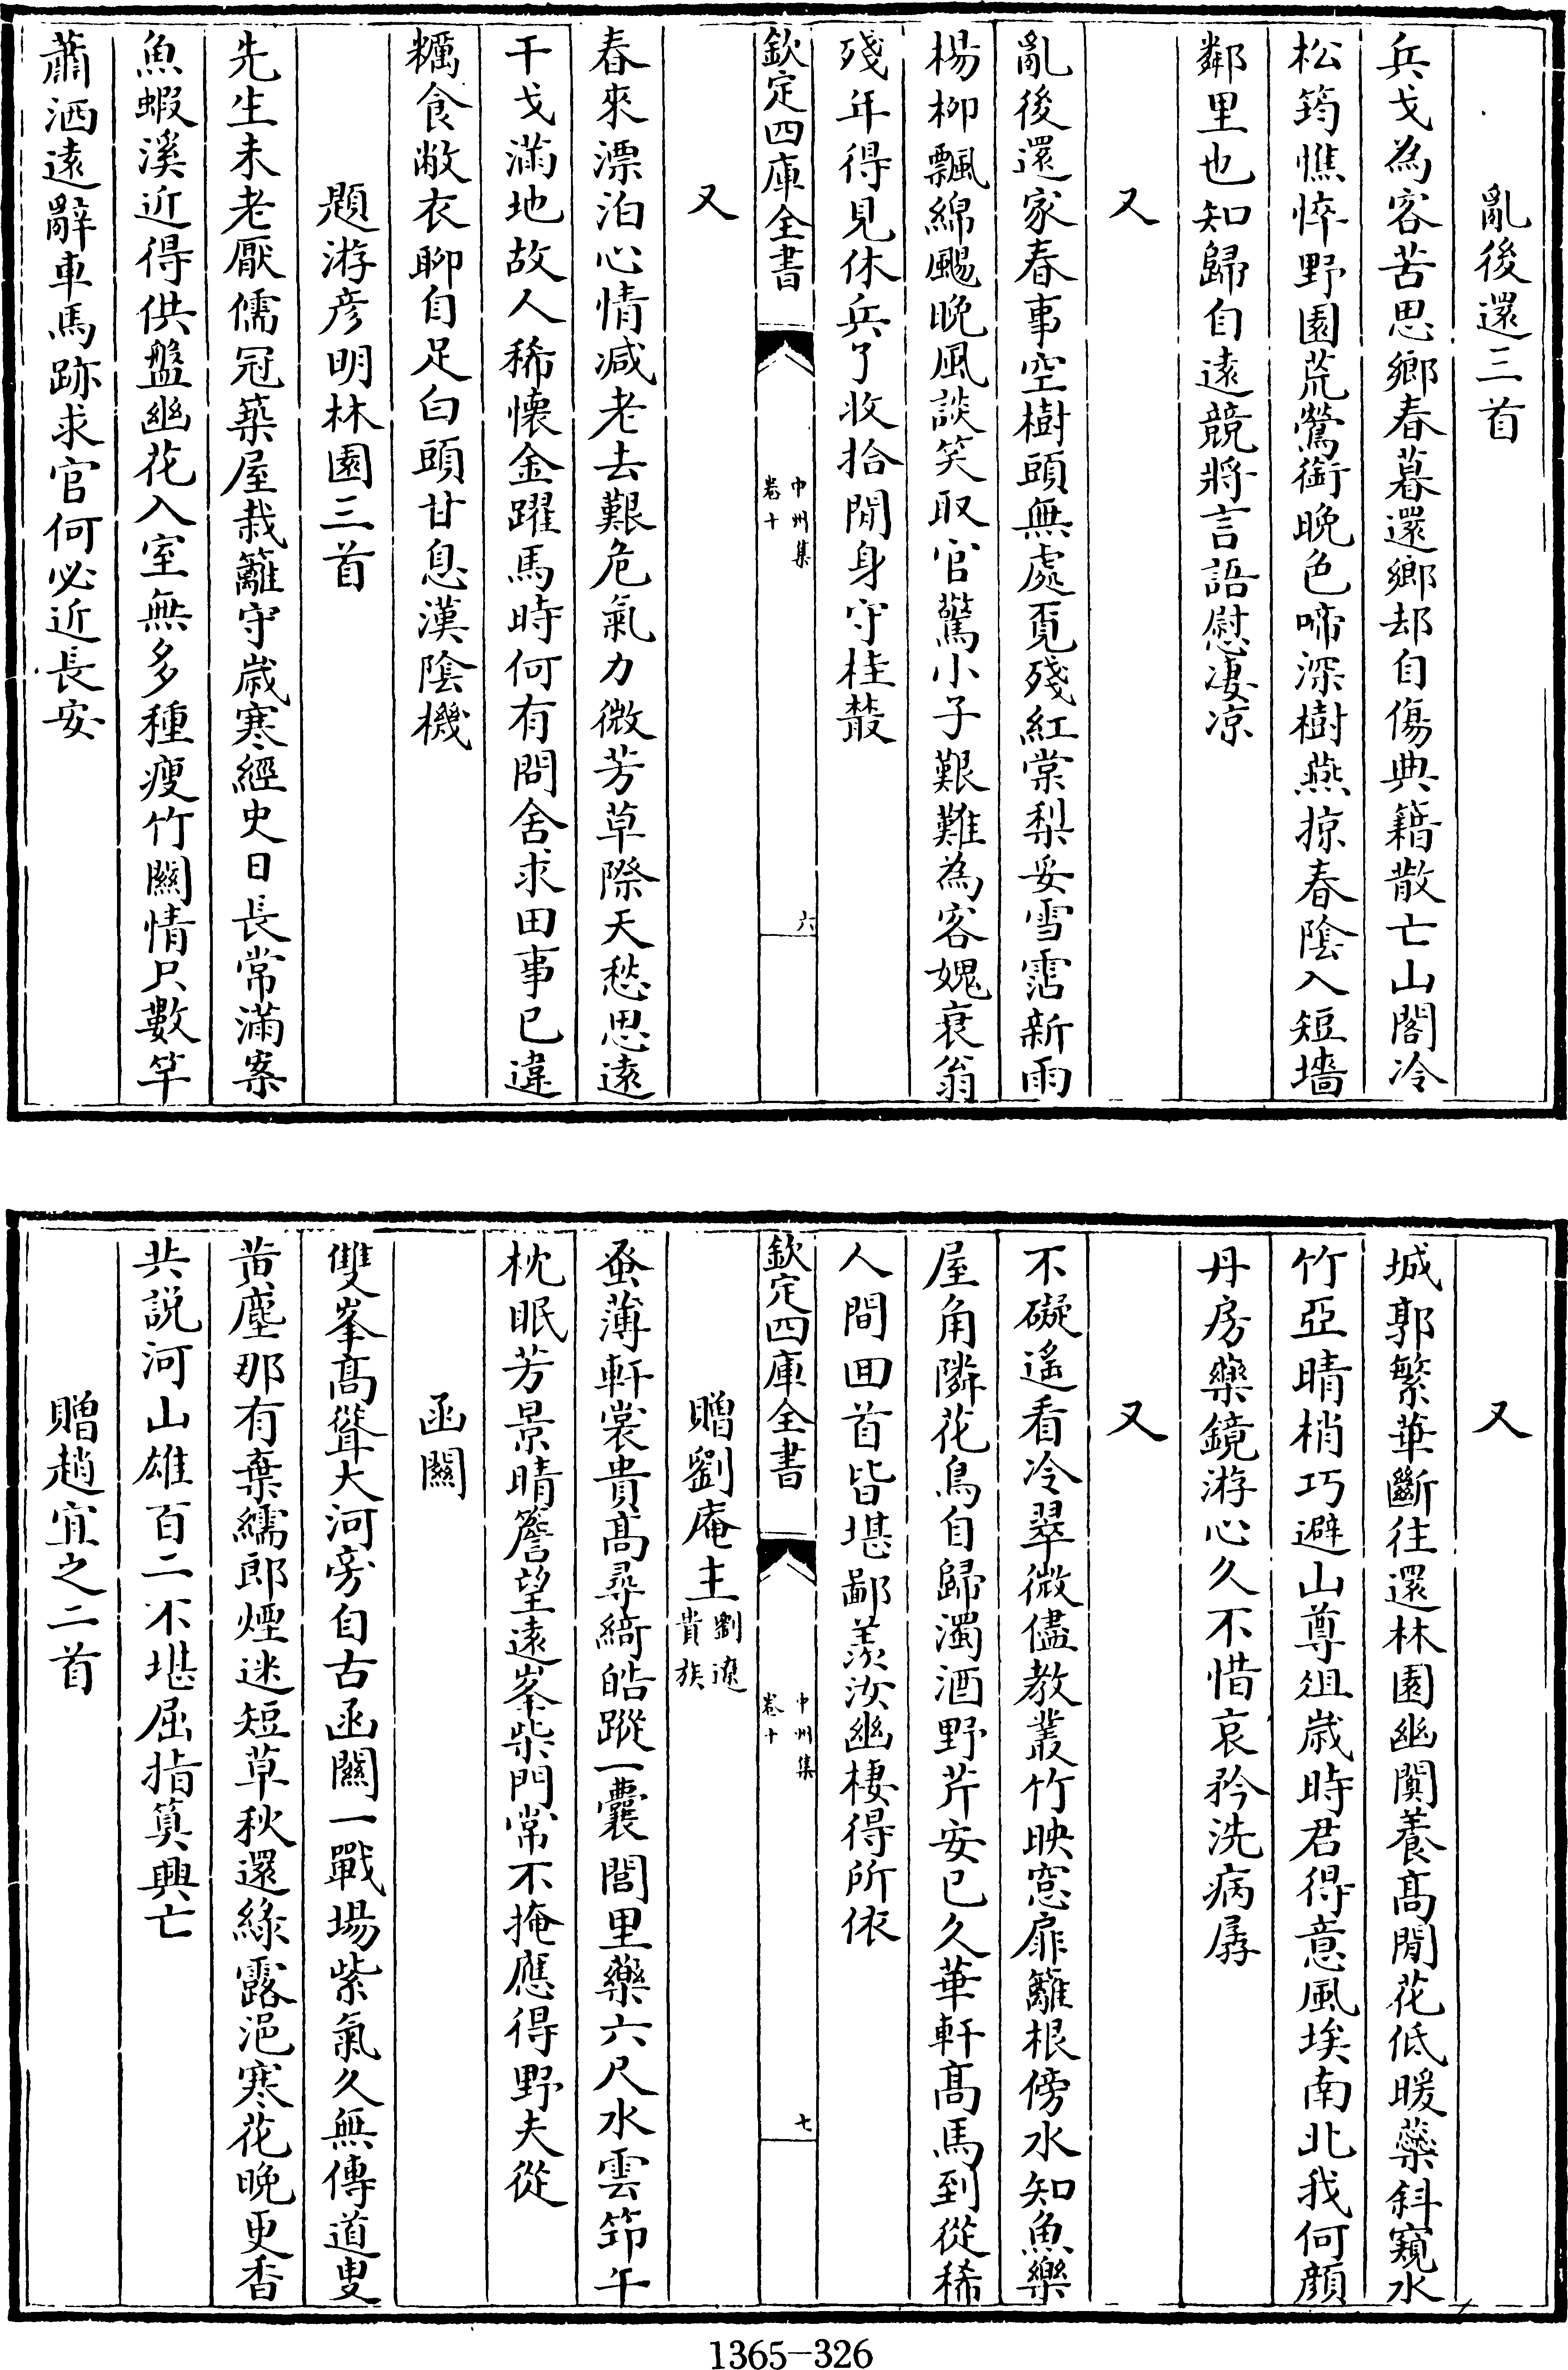 亂後還三首
兵戈為客苦思鄉春暮還鄉却自傷典籍散亡山閣冷
松筠憔悴野園荒鶯銜晚色啼深樹燕掠春陰入短墻
鄰里也知歸自遠競將言語慰凄凉
又
亂後還家春事空樹頭無處覓殘紅棠梨妥雪霑新雨
楊柳飄綿颺晚風談笑取官驚小子艱難為客媿衰翁
殘年得見休兵了收拾閒身守桂叢
欽定四庫全書
中州集
卷十
六
又
春來漂泊心情减老去艱危氣力微芳草際天愁思遠
干戈滿地故人稀懷金躍馬時何有問舍求田事已違
糲食敝衣聊自足白頭甘息漢陰機
題游彦明林園三首
先生未老厭儒冠築屋栽籬守歳寒經史日長常滿案
魚蝦溪近得供盤幽花入室無多種瘦竹關情只數竿
蕭洒遠辭車馬跡求官何必近長安
又
城郭繁華斷往還林園幽闃養髙閒花低暖藥斜窺水
竹亞晴梢巧避山尊俎歳時君得意風埃南北我何顔
丹房藥鏡游心久不惜哀矜洗病孱
又
不礙遙看冷翠微儘教叢竹映窓扉籬根傍水知魚樂
屋角隣花鳥自歸濁酒野芹安已久華軒髙馬到從稀
人間囬首皆堪鄙羨汝幽棲得所依
欽定四庫全書
中州集
卷十
七
贈劉庵主劉遼貴族
蚤薄軒裳貴髙尋綺皓蹤一囊閭里藥六尺水雲笻午
枕眠芳景晴簷望遠峯柴門常不掩應得野夫從
函關
雙峯髙聳大河旁自古函關一戰場紫氣久無傳道叟
黄塵那有棄繻郎煙迷短草秋還綠露浥寒花晚更香
共説河山雄百二不堪屈指算興亡
贈趙宜之二首
1365-326